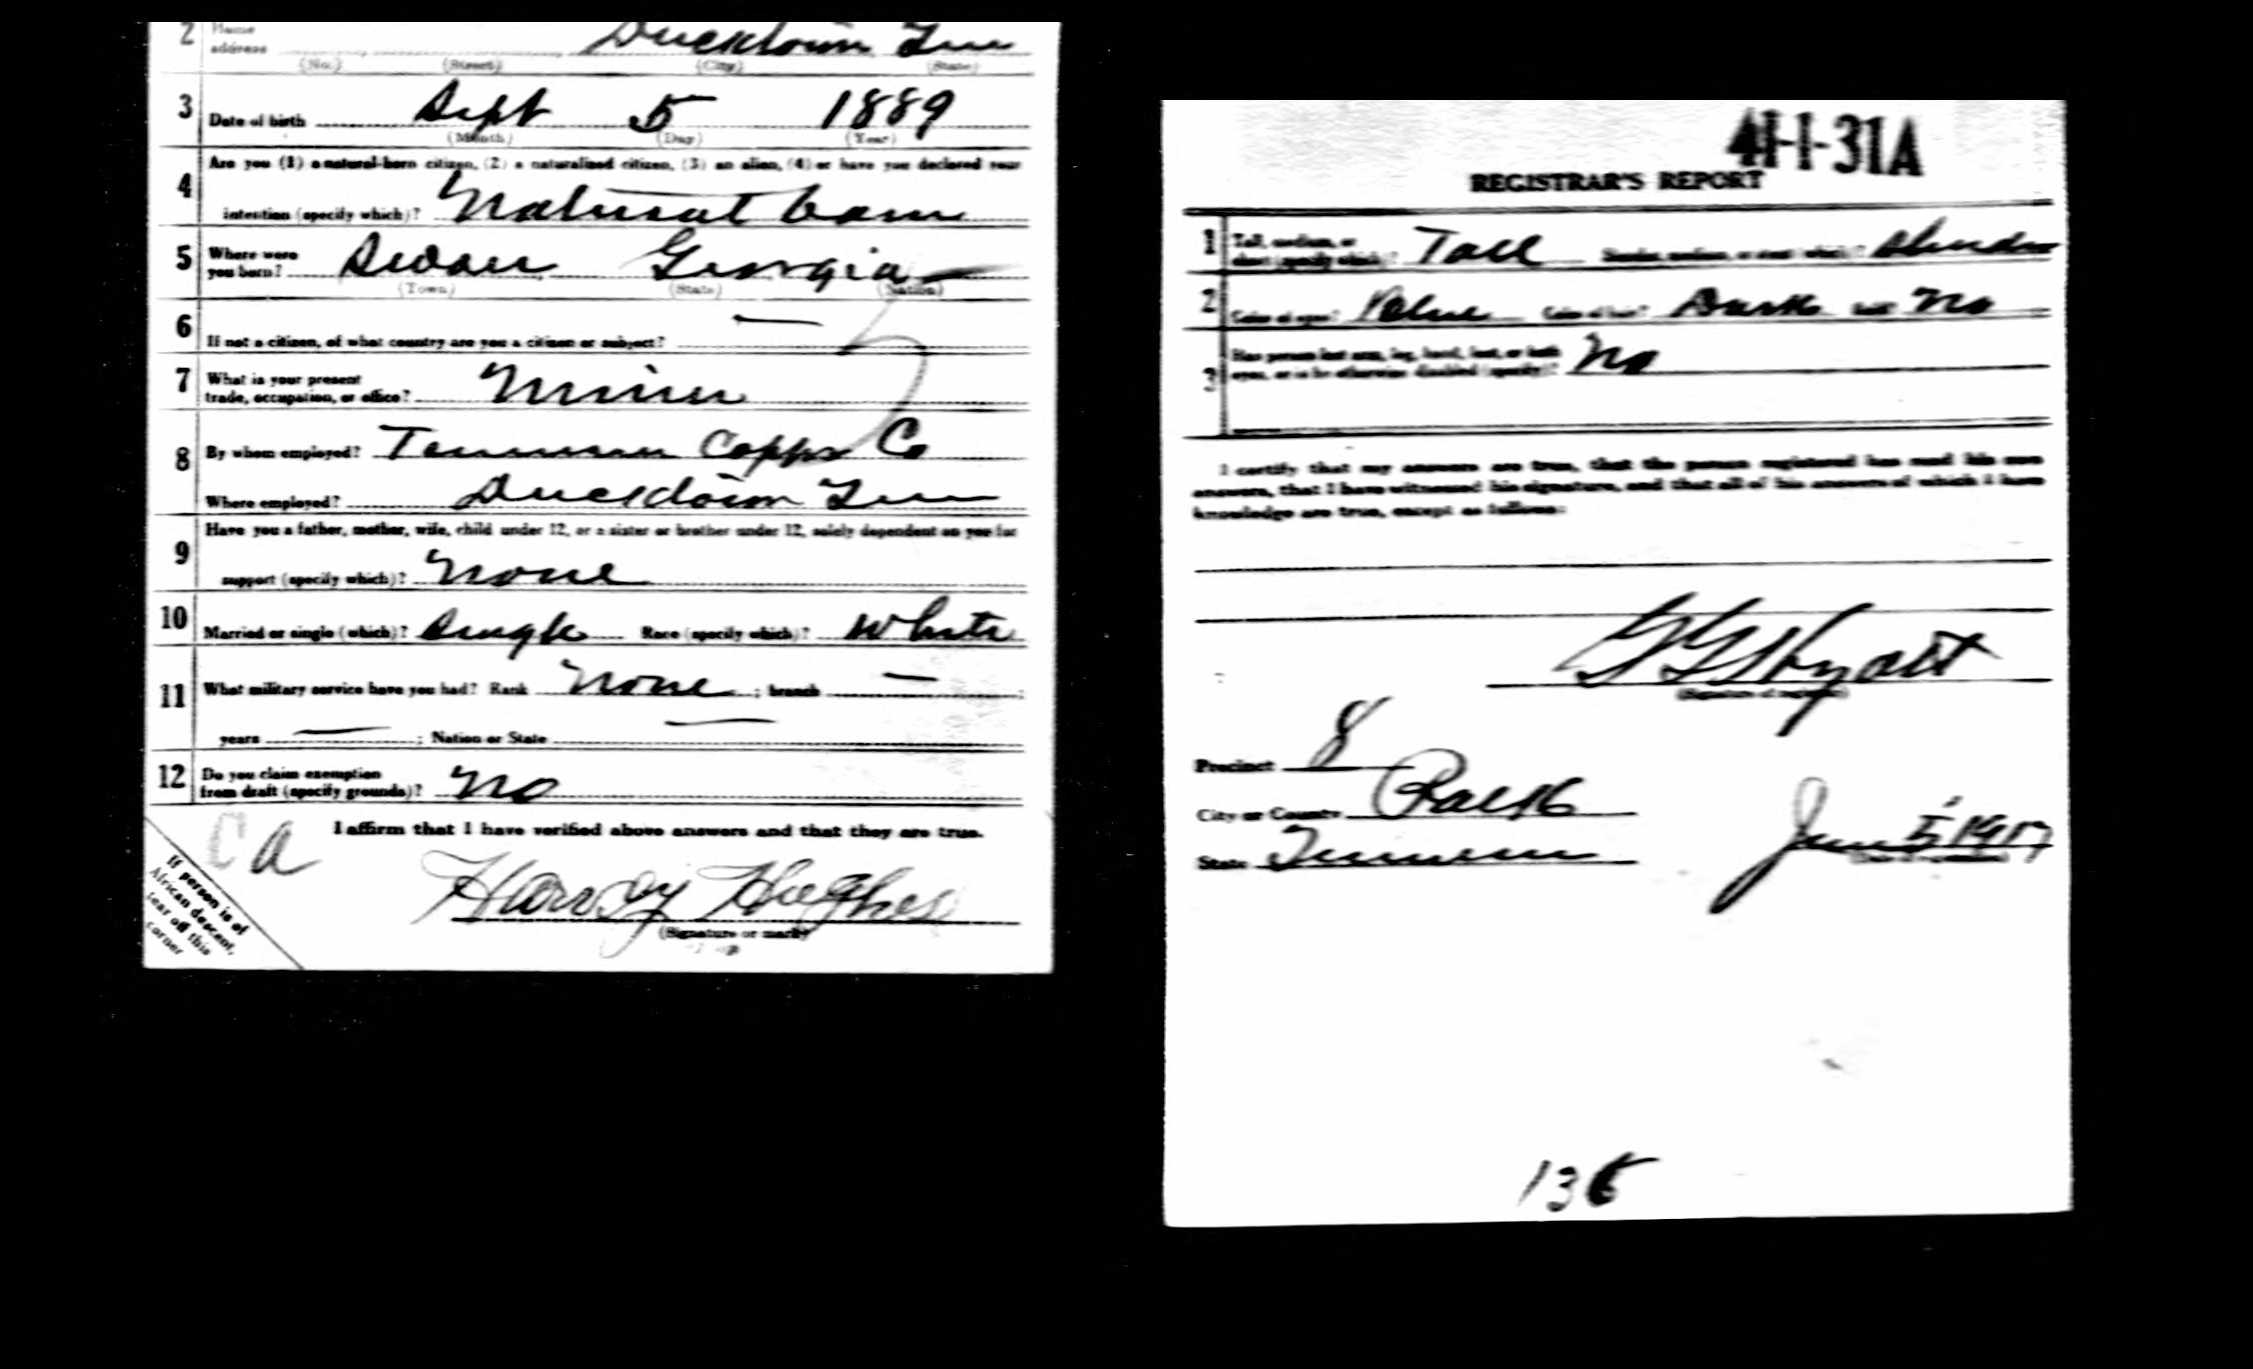 2 Home address Ducktown Tenn
(No.) (Street) (City) (State)
3 Date of birth Sept 5 1889
(Month) (Day) (Year)
4 Are you (1) a natural-born citizen, (2) a naturalized citizen, (3) an alien, (4) or have you declared your
intention (specify which)? Natural born
5 Where were you born? Georgia
(Town) (State) (Nation)
6 If not a citizen, of what country are you a citizen or subject? —
7 What is your present
trade, occupation, or office? Miner
8 By whom employed? Tennessee Copper Co
Where employed? Ducktown Tenn
9 Have you a father, mother, wife, child under 12, or a sister or brother under 12, solely dependent on you for
support (specify which)? None
10 Married or single (which)? Single Race (specify which)? White
11 What military service have you had? Rank None ; branch — ;
years — ; Nation or State —
12 Do you claim exemption
from draft (specify grounds)? No
I affirm that I have verified above answers and that they are true.
Harvey Hughes
(Signature or mark)
If person is of
African descent,
tear off this
corner
Ca
41-1-31A
REGISTRAR'S REPORT
1 Tall, medium, or
short (specify which)? Tall Slender, medium, or stout (which)? Slender
2 Color of eyes? Blue Color of hair? Dark Bald? No
3 Has person lost arm, leg, hand, foot, or both
eyes, or is he otherwise disabled (specify)? No
I certify that my answers are true, that the person registered has read his own
answers, that I have witnessed his signature, and that all of his answers of which I have
knowledge are true, except as follows:
Hyatt
(Signature of registrar)
Precinct 8
City or County Polk
State Tennessee
June 5 1917
(Date of registration)
136